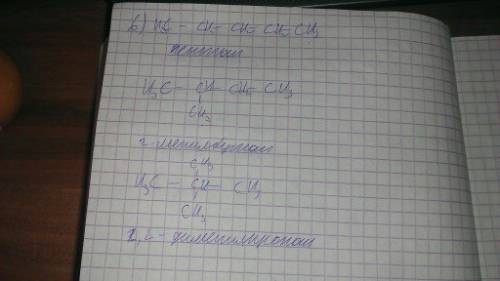 б) H3C - CH2 - CH2 - CH2 - CH3
пентан
H3C - CH - CH2 - CH3
CH3
2-метилбутан
CH3
H3C - CH - CH3
CH3
2,2-диметилпропан